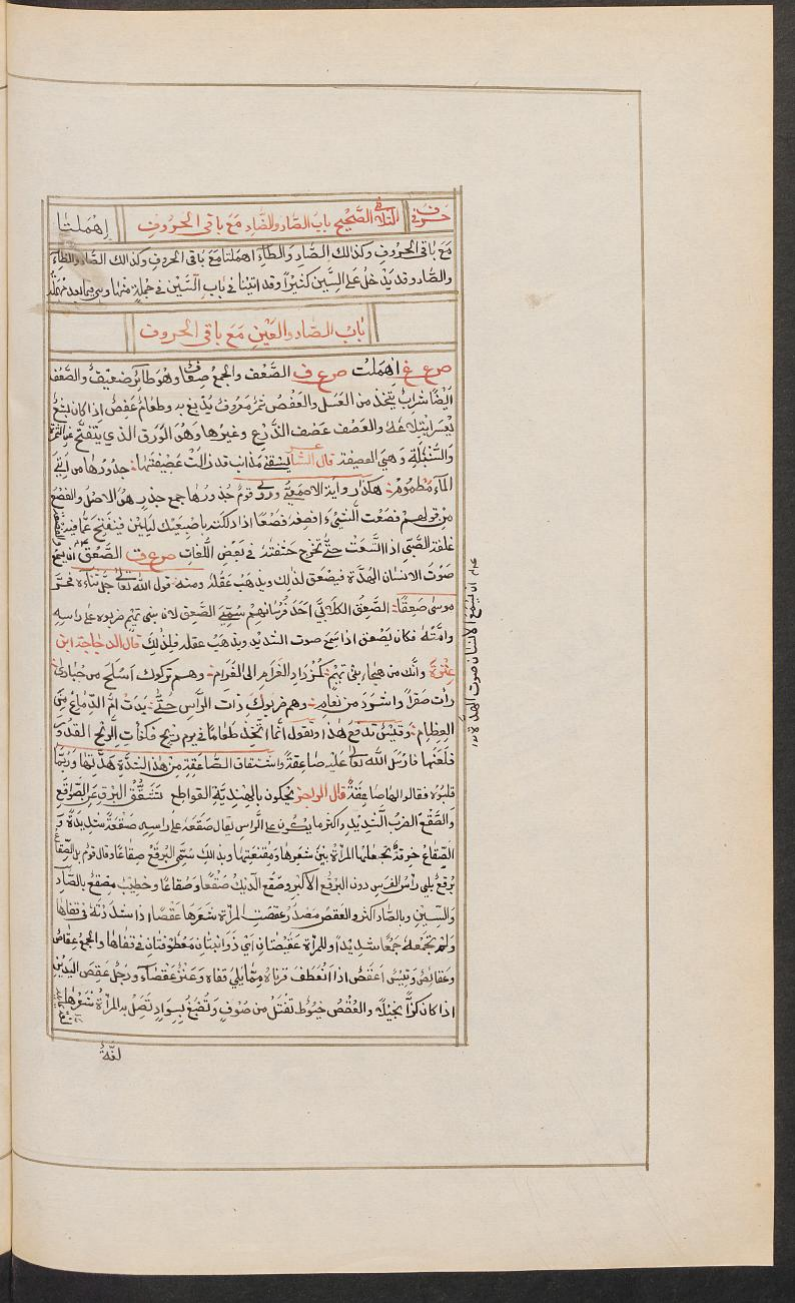 حرف في الثلاثي الصحيح باب الصاد والضاد مع باقي الحروف اهملتا
مع باقي الحروف وكذالك الصاد والطاء اهملتا مع باقي الحروف وكذالك الصاد والظاء
والصاد وقد يدخل على السين كثيرا وقد اتينا في باب السين في جملة منها
باب الصاد والعين مع باقي الحروف
ص ع غ اهملت ص ع ف الصعف والجمع صعاف وهو طائر ضعيف والصعف
ايضا شراب يتخذ من العسل والعفص ثمر معروف يدبغ به وطعام عفص اذا كان بشع
يعسر ابتلاعه والعصف عصف الزرع وغيرها وهو الورق الذي يتفتح عن الثمرة
والسنبلة وهي العصيفة قال الشاعر يسقي مذانب قد زالت عصيفتها جدورها من اتي
الماء مطموم هكذا رواية الاصمعي وروى قوم جذورها جمع جذر هو الاصل والفصع
من قولهم فصعت الشيء افصعه فصعا اذا دلكته باصبعيك ليلين فينفتح عما فيه
غلفة الصبي اذا اتسعت حتى تخرج حشفته في بعض اللغات ص ع ق الصعق ان يسمع
صوت الانسان الهدة فيصعق لذلك ويذهب عقله ومنه قول الله تعالى جل ثناءه فخر
موسى صعقا الصعق الكلابي احد فرسانهم سمي الصعق لان بني تميم ضربوه على راسه
وامته فكان يصعق اذا سمع صوت الشديد ويذهب عقله فلذلك قال الدجاجة ابن
عترة وانك من هجاء بني تميم كمزداد الغرام الى الغرام وهم تركوك اسلح من حبارى
رات صقرا واشرد من نعام وهم ضربوك ذات الراس حتى بدت ام الدماغ من
العظام وقيس تدفع هذا وتقول انما اتخذ طعاما في يوم ريح فكفات الريح القدور
فلعنها فارسل الله تعالى عليه صاعقة واشتقاق الصاعقة من هذا لشدة هدتها وربما
قلبوه فقالوا لها صاقعة قال الراجز يحكون بالهندية القواطع تشقق البرق عن الصواقع
والصقع الضرب الشديد واكثر ما يكون على الراس يقال صقعه على راسه صقعة شديدة و
الصقاع خرقة تجعلها المراة بين شعرها ومقنعتها وبذالك سمي البرقع صقاعا وقال قوم بل الصقاع
برقع يلي راس الفرس دون البرقع الاكبر وصقع الديك صقعا وصقاعا وخطيب مصقع بالصاد
والسين وبالصاد اكثر والعقص مصدر عقصت المراة شعرها عقصا اذا شدته في قفاها
ولم تجمعه جمعا شديدا وللمراة عقيصتان اي ذوابتان معطوفتان في قفاها والجمع عقاص
وعقائص وتيس اعقص اذا انعطف قرناه مما يلي قفاه وعنز عقصاء ورجل عقص اليدين
اذا كان كزا بخيلا والعقص خيوط تفتل من صوف وتصبغ بسواد تصل به المراة شعرها
لغة
ان يسمع الانسان صوت الهدة